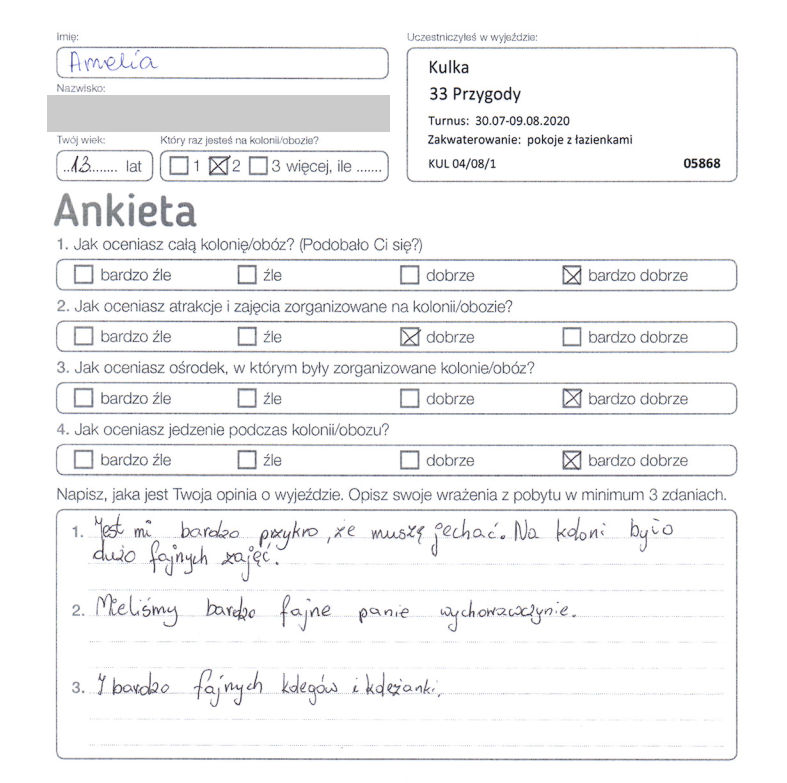 Imię:
Amelia
Nazwisko:
Twój wiek:
Który raz jesteś na kolonii/obozie?
..13....... lat
1 2 3 więcej, ile .......
Uczestniczyłeś w wyjeździe:
Kulka
33 Przygody
Turnus: 30.07-09.08.2020
Zakwaterowanie: pokoje z łazienkami
KUL 04/08/1 05868
Ankieta
1. Jak oceniasz całą kolonię/obóz? (Podobało Ci się?)
bardzo źle źle dobrze bardzo dobrze
2. Jak oceniasz atrakcje i zajęcia zorganizowane na kolonii/obozie?
bardzo źle źle dobrze bardzo dobrze
3. Jak oceniasz ośrodek, w którym były zorganizowane kolonie/obóz?
bardzo źle źle dobrze bardzo dobrze
4. Jak oceniasz jedzenie podczas kolonii/obozu?
bardzo źle źle dobrze bardzo dobrze
Napisz, jaka jest Twoja opinia o wyjeździe. Opisz swoje wrażenia z pobytu w minimum 3 zdaniach.
1. Jest mi bardzo przykro, że muszę jechać. Na koloni było
dużo fajnych zajęć.
2. Mieliśmy bardzo fajne panie wychowawczynie.
3. I bardzo fajnych kolegów i koleżanki.